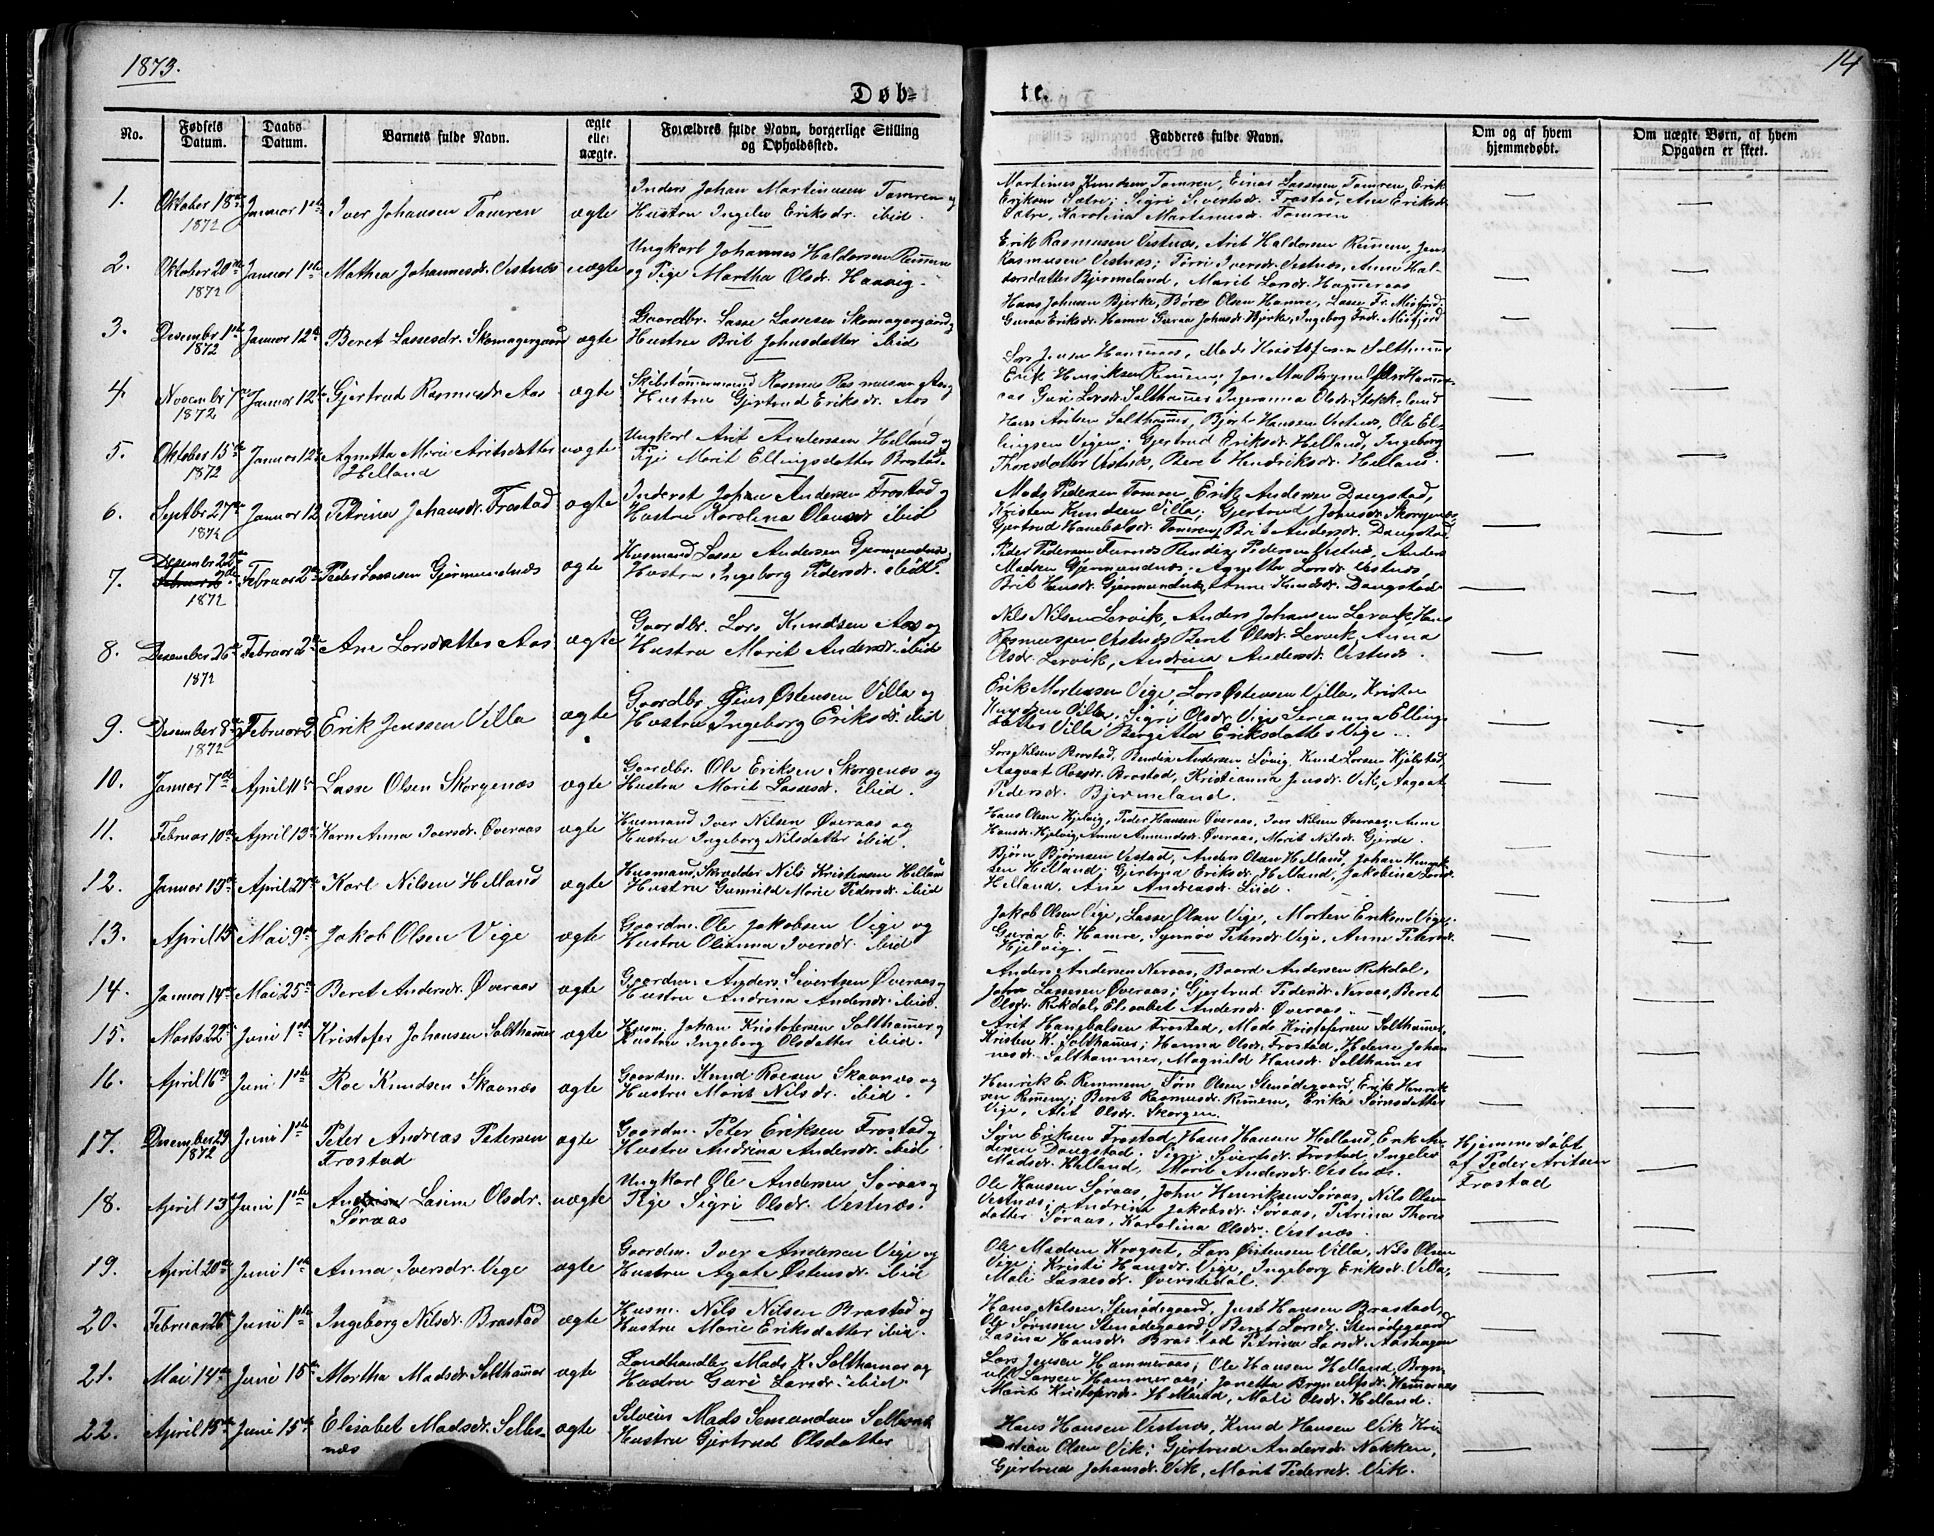 1873.
14
Døb=
te.
No.
Fødsels Datum.
Daabs Datum.
Barnets fulde Navn.
ægte eller uægte.
Forældres fulde Navn, borgerlige Stilling og Opholdssted.
Fadderes fulde Navn.
Om og af hvem hjemmedøbt.
Om uægte Børn, af hvem Opgaven er skeet.
1. Oktober 18de 1872 Januar 1ste Iver Johansen Tomren ægte
Inders Johan Martinusen Tomren og
Hustru Ingelev Eriksdr. ibid.
Martines Knudsen Tomren, Einar Lassesen Tomren, Erik
Eriksen Sætre; Sigri Sivertsdr. Frostad, Ane Eriksdr.
Sætre, Karolina Martinusdr. Tomren
2. Oktober 20de 1872 Januar 1ste Mathea Johannesdr. Vestnæs uægte
Ungkarl Johannes Haldorsen Remmen
og Pige Martha Olsdr. Haavig.
Erik Rasmusen Vestnæs, Arit Haldorsen Remmem, Jens
Rasmusen Vestnæs; Iversdr. Vestnæs, Anne Hal-
dorsdatter Bjermeland, Marit Larsdr. Hammeraas
3. Desember 1ste 1872 Januar 12te Beret Lassesdr. Skomagergaard ægte
Gaardbr. Lasse Lassesen Skomagergaard og
Hustru Brit Johnsdatter ibid
Hans Johnsen Bjerke, Børe Olsen Hamre, Lasse Fr. Misfjord
Guraa Eriksdr. Hamre Guraa Johnsdr. Bjerke, Ingeborg Misfjord
4. November 7de 1872 Januar 12te Gjertrud Rasmusdr. Aas ægte
Skibstømmermand Rasmus Rasmussen Aas og
Hustru Gjertrud Eriksdr. Aas
Lars Jensen Hammeraas, Mads Kristofersen Salthammer
Erik Henriksen Remmen;
Guri Larsdr. Salthammer Ingeranna Olsdr. Stokkeland
5. Oktober 15de 1872 Januar 12te Agnetta Marie Aritsdatter uægte
Helland
Ungkarl Arit Andersen Helland og
Pige Marit Ellingsdatter Brastad.
Hans Salthammer, Bjørn Hansen Vestnæs, Ole El-
lingsen Vigen; Gjertrud Eriksdr. Helland, Ingeborg
Thoresdatter Vestnæs, Beret Hendriksdr. Helland.
6. Septbr. 27de 1872 Januar 12 Petrina Johansdr. Frostad ægte
Inderst Johan Andersen Frostad og
Hustru Karolina Olausdr. ibid
Mads Pedersen Tomren, Erik Andersen Daugstad,
Kristen Knudsen Villa; Gjertrud Johnsdr. Skorgenæs
Gjertrud Tomren, Brit Andersdr. Daugstad
7. Desember 22de 1872 Februar 2den Peder Lassesen Gjermundnæs ægte
Husmand Lasse Andersen Gjermundnæs og
Hustru Ingeborg Pedersdr. ibid.
Peder Pedersen Furnæs Rendix Pedersen Vestnæs, Anders
Madsen Gjermundnæs; Agnetta Larsdr. Vestnæs,
Brit Hansdr. Gjermundnæs Anne Knudsdr. Daugstad
8. Desember 26de 1872 Februar 2den Ane Larsdatter Aas ægte
Gaardbr. Lars Knudsen Aas og
Hustru Marit Andersdr. ibid
Nils Nilsen Lervik, Anders Johansen Lervik, Hans
Rasmussen Vestnæs Beret Olsdr. Lervik, Anna
Olsdr. Lervik, Andrina Andersdr. Vestnæs.
9. Desember 8de 1872 Februar 2 Erik Jenssen Villa ægte
Gaardbr. Jens Østensen Villa og
Hustru Ingeborg Eriksdr. ibid
Erik Mortensen Vige, Lars Østensen Villa, Kristen
Knudsen Villa, Sigri Olsdr. Vige Serianna Elling
datter Villa Bergitta Eriksdatter Vige.
10. Januar 7de April 11te Lasse Olsen Skorgenæs ægte
Gaardbr. Ole Eriksen Skorgenæs og
Hustru Marit Lassesdr. ibid.
Lars Nilsen Brastad, Rendix Andersen Svig, Knud Larsen Kjelstad,
Aagaat Rasdr. Brastad, Kristianna Jensdr. Vik, Aagaat
Pedersdr. Bjermeland.
11. Februar 10de April 13de Karn Anna Iversdr. Øveraas ægte
Husmand Iver Nilsen Øveraas og
Hustru Ingeborg Nilsdatter ibid.
Hans Olsen Hjelvig, Peder Hansen Øveraas, Iver Nilsen Øveraas, Anne
Hansdr. Hjelvig, Anne Amundsdr. Øveraas, Marit Nilsdr. Gjerde.
12. Januar 13de April 27de Karl Nilsen Helland ægte
Husmand, Skrædder Nils Kristensen Helland
Hustru Gunnild Marie Pedersdr. ibid
Bjørn Bjørnsen Vestad, Anders Olsen Helland, Johan
Helland; Gjertrud Eriksdr. Helland, Jakobine Larsdr.
Helland, Ane Andreasdr. ibid.
13. April 13 Mai 9de Jakob Olsen Vige ægte
Gaardm. Ole Jakobsen Vige og
Hustru Olianna Iversdr. ibid
Jakob Olsen Vige, Lasse Olsen Vige, Morten Eriksen Vige;
Guraa E. Hamre, Synnøv Petersdr. Vige, Anne Petersdr.
Hjelvig.
14. Januar 14de Mai 25de Beret Andersdr. Øveraas ægte
Gaardm. Anders Sivertsen Øveraas og
Hustru Andrina Andersdr. ibid.
Anders Andersen Neraas, Baard Andersen Rekdal,
John Lassesen Øveraas; Gjertrud Pedersdr. Neraas, Beret
Olsdr. Rekdal, Elisabet Andersdr. Øveraas.
15. Marts 22de Juni 1ste Kristofer Johansen Salthammer ægte
Husm. Johan Kristofersen Salthammer og
Hustru Ingeborg Olsdatter ibid.
Arit Frostad, Mads Kristofersen Salthammer,
Kristen K. Salthammer; Hanna Olsdr. Frostad, Helene Johan
nesdr. Salthammer, Magnild Hansdr. Salthammer
16. April 16de Juni 1ste Roe Knudsen Skavnæs ægte
Gaardm. Knud Roesen Skavnæs og
Hustru Marit Nilsdr. ibid.
Henrik E. Remmem, Søren Olsen Stenødegaard, Erik Henrik-
sen Remmem; Beret Rasmusdr. Remmem, Erika Sørensdatter
Vige, Alet Olsdr. Skorgen.
17. Desember 29 1872 Juni 1ste Peter Andreas Petersen ægte
Frostad
Gaardm. Peter Eriksen Frostad og
Hustru Andrina Andersdr. ibid
Søren Eriksen Frostad, Hans Hansen Helland, Erik An-
dersen Daugstad; Sigri Sivertsdr. Frostad, Ingelev
Madsdr. Helland, Marit Andersdr. Vestnæs.
Hjemmedøbt
af Peder Aritsen
Frostad
18. April 13de Juni 1ste Lasine Olsdr. uægte
Søraas
Ungkarl Ole Andersen Søraas og
Pige Sigri Olsdr. Vestnæs.
Ole Hansen Søraas, John Henriksen Søraas, Nils Olsen
Vestnæs; Andrina Jakobsdr. Søraas, Petrina Thores
datter Søraas, Karolina Olsdr. Vestnæs.
19. April 20de Juni 1ste Anna Iversdr. Vige ægte
Gaardm. Iver Andersen Vige og
Hustru Agate Østensdr. ibid
Ole Madsen Krogset, Lars Østensen Villa, Nils Olsen
Vige; Kristi Hansdr. Vige, Ingeborg Eriksdr. Villa,
Mali Lassesdr. Øverstedal.
20. Februar 26de Juni 1ste Ingeborg Nilsdr. Brastad ægte
Husm. Nils Nilsen Brastad og
Hustru Marie Eriksdatter ibid.
Hans Nilsen Stenødegaard, Just Hansen Brastad,
Ole Sørensen Stenødegaard; Beret Larsdr. Stenødegaard
Lasina Hansdr. Brastad Petrina Larsdr. Aashagen
21. Mai 14de Juni 15de Martha Madsdr. Salthammer ægte
Landhandler Mads K. Salthammer og
Hustru Guri Larsdr. ibid.
Lars Jensen Hammeraas; Ole Hansen Helland, Bryn-
Larsen Hammeraas; Janetta Brynulfsdr. Hammeraas
Marit Kristofersdr. Helland, Mali Olsdr. Helland.
22. April 15de Juni 15de Elisabet Madsdr. Selles- ægte
næs
Mads Semundsen Sellesnæs
Hustru Gjertrud Olsdatter
Hans Hansen Vestnæs, Knud Hansen Vik Kri
stian Olsen Vik; Gjertrud Andersdr. Nakken,
Gjertrud Johansdr. Vik, Marit Pedersdr. Vik.